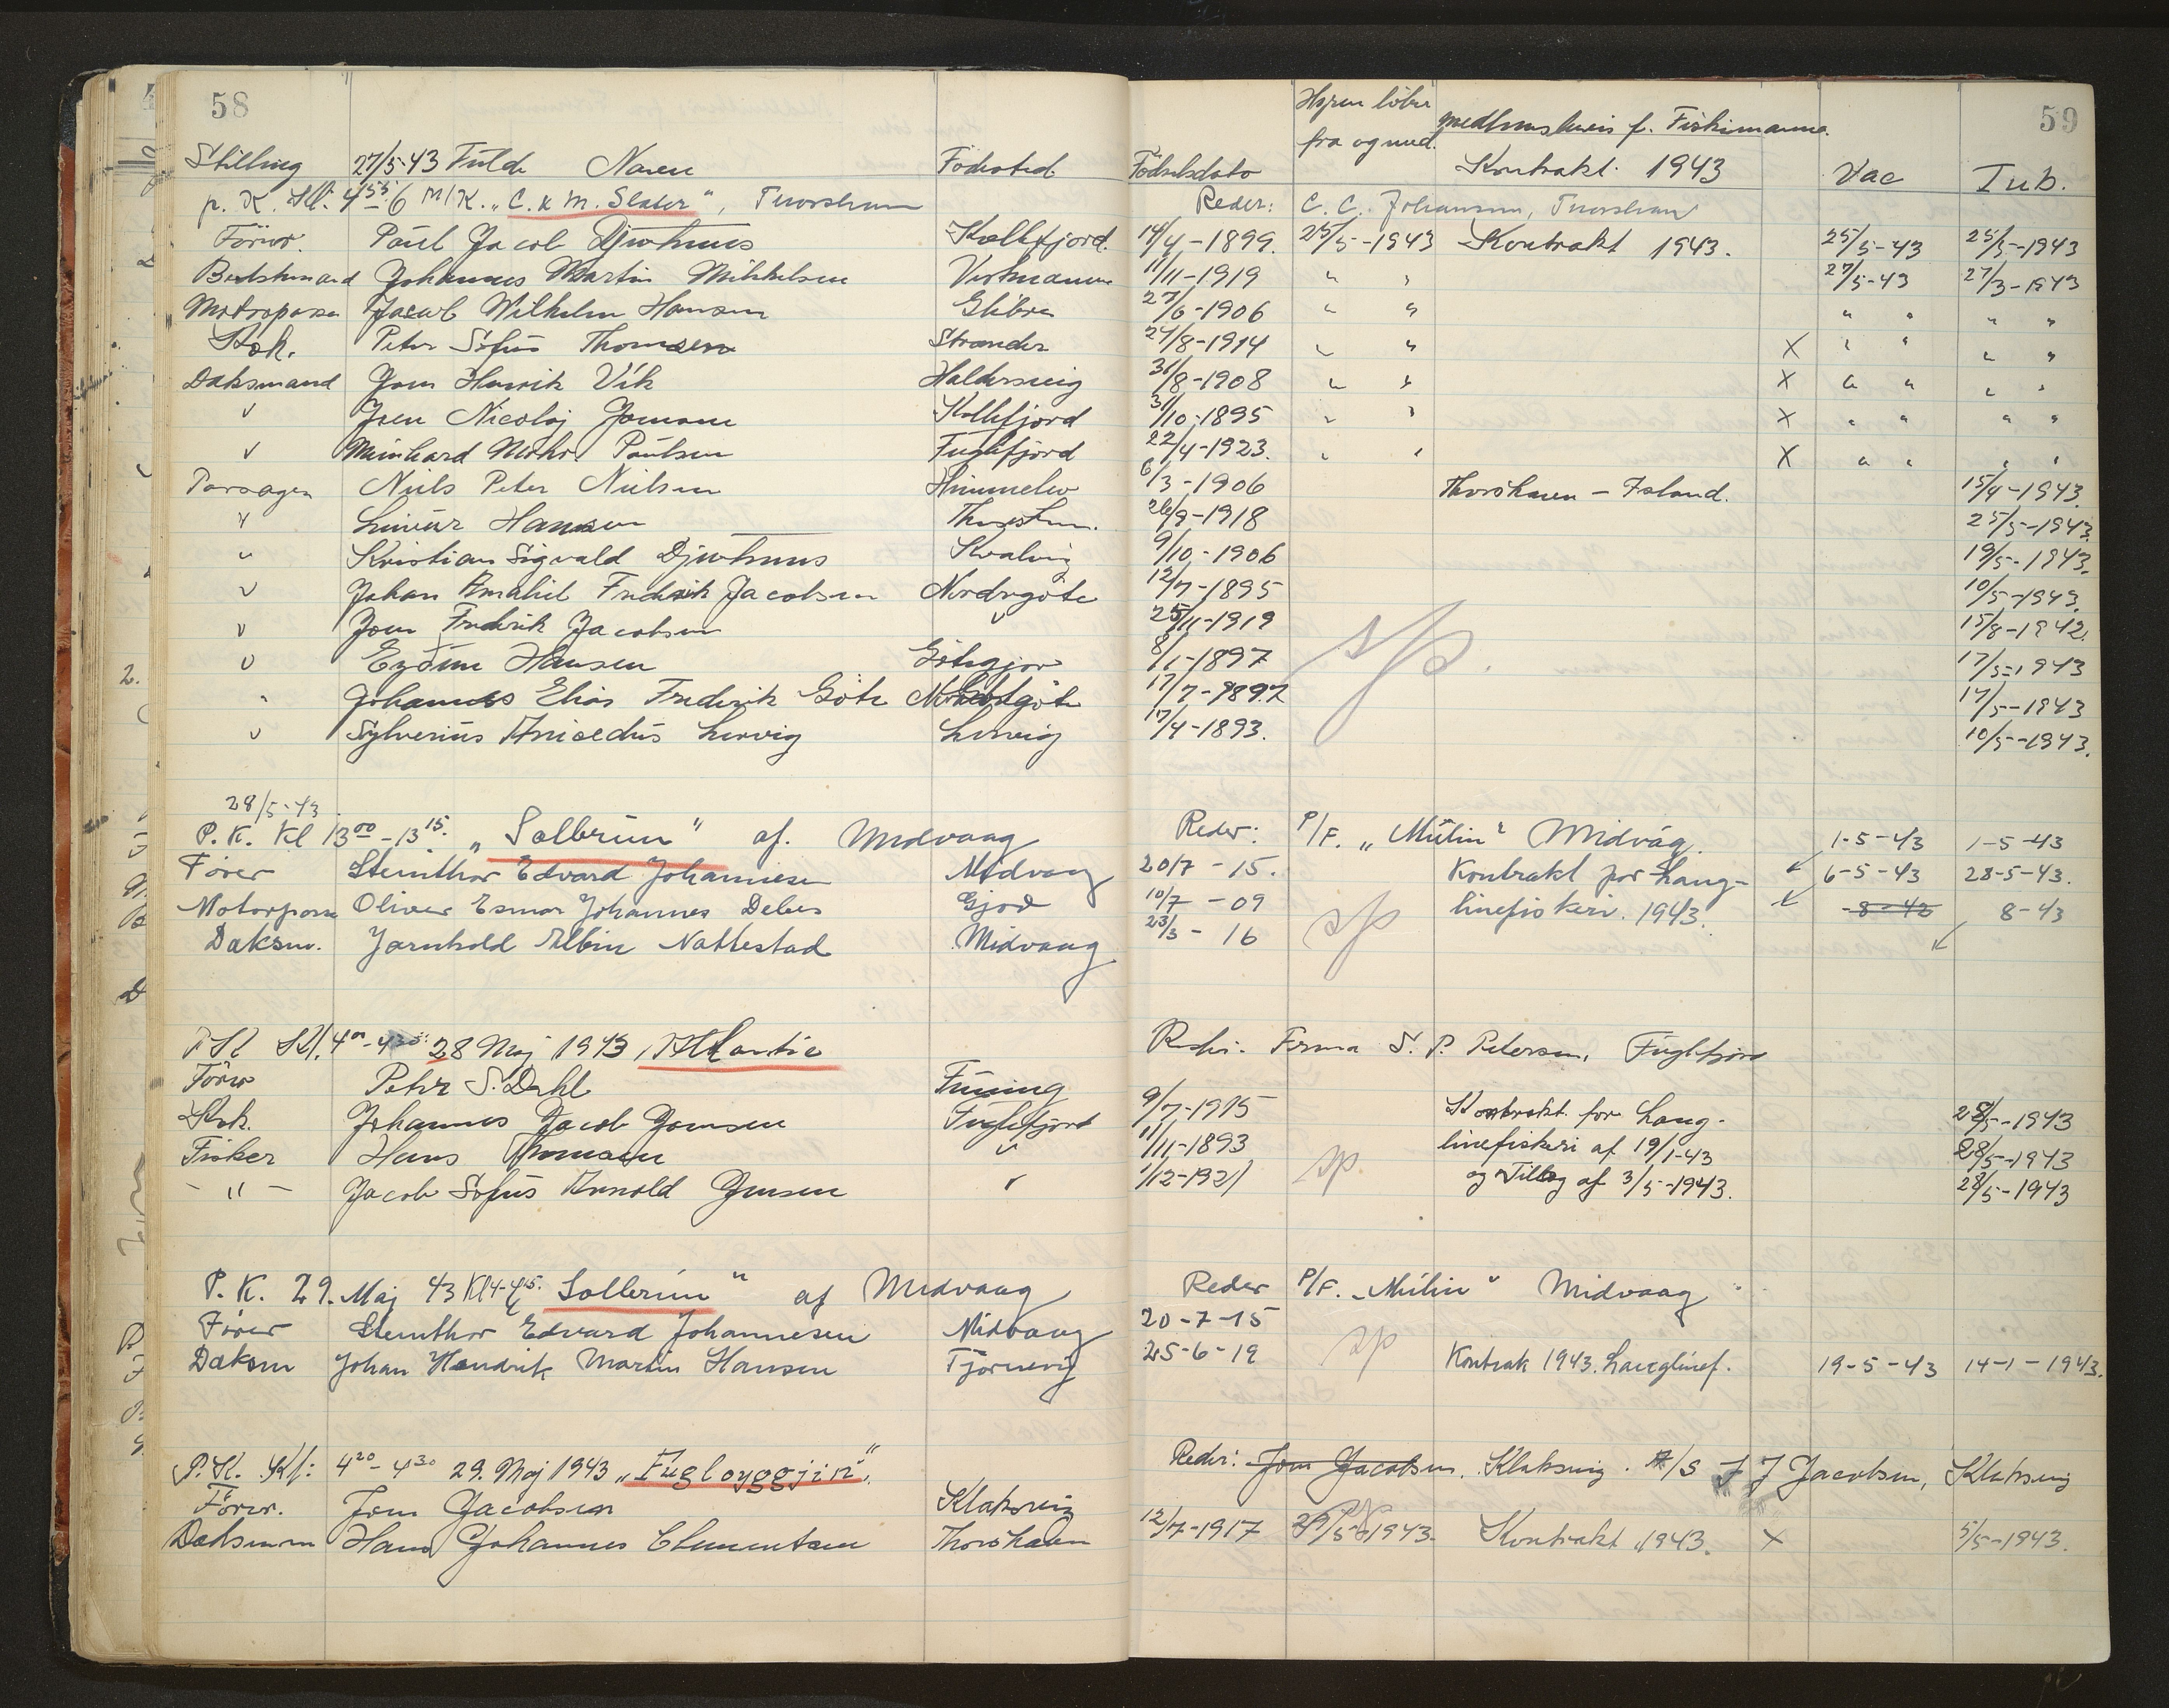 58
59
Hyren løber
fra og med.
medlemsbevis f. Fiskimanna
Stilling 27/5-43 Fulde Navn Födested Födselsdato Kontrakt. 1943 Vac Tub.
p. K. Kl. 4 55 - 6 M/K. „C. & M. Slater", Thorshavn Reder: C. C. Johansen, Thorshavn
Förer. Paul Jacob Djurhuus Kollefjord. 14/4-1899. 25/5-1943 Kontrakt 1943. 25/5-43 25/5-1943
Bedstemand Johannes Martin Mikkelsen Vestmanna 11/11-1919 " " 27/5-43 27/3-1943
Motorpasser Jacob Wilhelm Hansen Glibre 27/6-1906 " " " " " "
Kok. Peter Sofus Thomsen Strander 24/8-1914 " " X " " " "
Daksmand Jom Henrik Vik Haldersvig 31/8-1908 " " X " " " "
" Joen Nicolaj Joensen Kollefjord 31/10-1895 " " X " " " "
" Meinhard Mohr Poulsen Fuglefjord 22/4-1923. " " X " " " "
Passager Niels Peter Nielsen Himmelev 6/3-1906 Thorshavn - Island. 15/4-1943
" Linius Hansen Thorshavn. 26/9-1918 25/5-1943
" Kristian Sigvald Djurhuus Kvalvig 9/10-1906 19/5-1943.
" Johan Fredrik Jacobsen Nordregöte 12/7-1895 10/5-1943.
" Jom Fredrik Jacobsen " 25/11-1919 15/8-1942.
" Eydun Hansen Götegjov 8/1-1897 sp. 17/5-1943
" Johannes Elias Frederik Göte Nordregöte 17/7-1897 17/5-1943
" Sylverius Lervig Lervig 17/4-1893. 10/5-1943.
28/5-43.
P. K. Kl 13 00 - 13 15. „Solbrún" af. Midvaag Reder: P/F. „Múlin" Midvág. 1-5-43 1-5-43
Förer Steinthor Edvard Johannesen Midvaag 20/7 - 15. Kontrakt for Lang- 6-5-43 28-5-43.
Motorpasser Oliver Esmar Johannes Debes Gjov 10/7 - 09 sp linefiskeri. 1943. -8-43 8-43
Daksm. Jarnhold Albin Nattestad Midvaag 23/3 - 16
Kl. 4 00 - 4 28 Maj 1943 Atlantic Reder. Firma S. P. Petersen, Fuglefjord
Förer Peter S. Dahl Funing
Kok. Johannes Jacob Joensen Fuglefjord 9/7-1915 Kontrakt for Lang- 28/5-1943
Fisker Hans Thomsen " 11/11-1893 sp. linefiskeri af 19/1-43 28/5-1943
- " - Jacob Sofus Arnold Jensen " 1/12-1921 og Tillæg af 3/5-1943. 28/5-1943
P. K. 29. Maj 43 Kl 4-4 15. Solbrún" af Midvaag Reder P/F. „Múlin" Midvaag
Förer Steinthor Edvard Johannesen Midvaag 20-7-15
Daksm Johan Hendrik Martin Hansen Tjörnevig 25-6-19 sp Kontrak 1943. Langlinef. 19-5-43 14-1-1943.
P. K. Kl: 4 20 - 4 30 29. Maj 1943 „Fugloyggjin". Reder: Jom Jacobsen, Klaksvig. A/S J J Jacobsen, Klaksvig
Förer. Jom Jacobsen Klaksvig
Daksmann Hans Johannes Clementsen Thorshavn 12/7-1917 29/5-1943. Kontrakt 1943. X 5/5-1943.